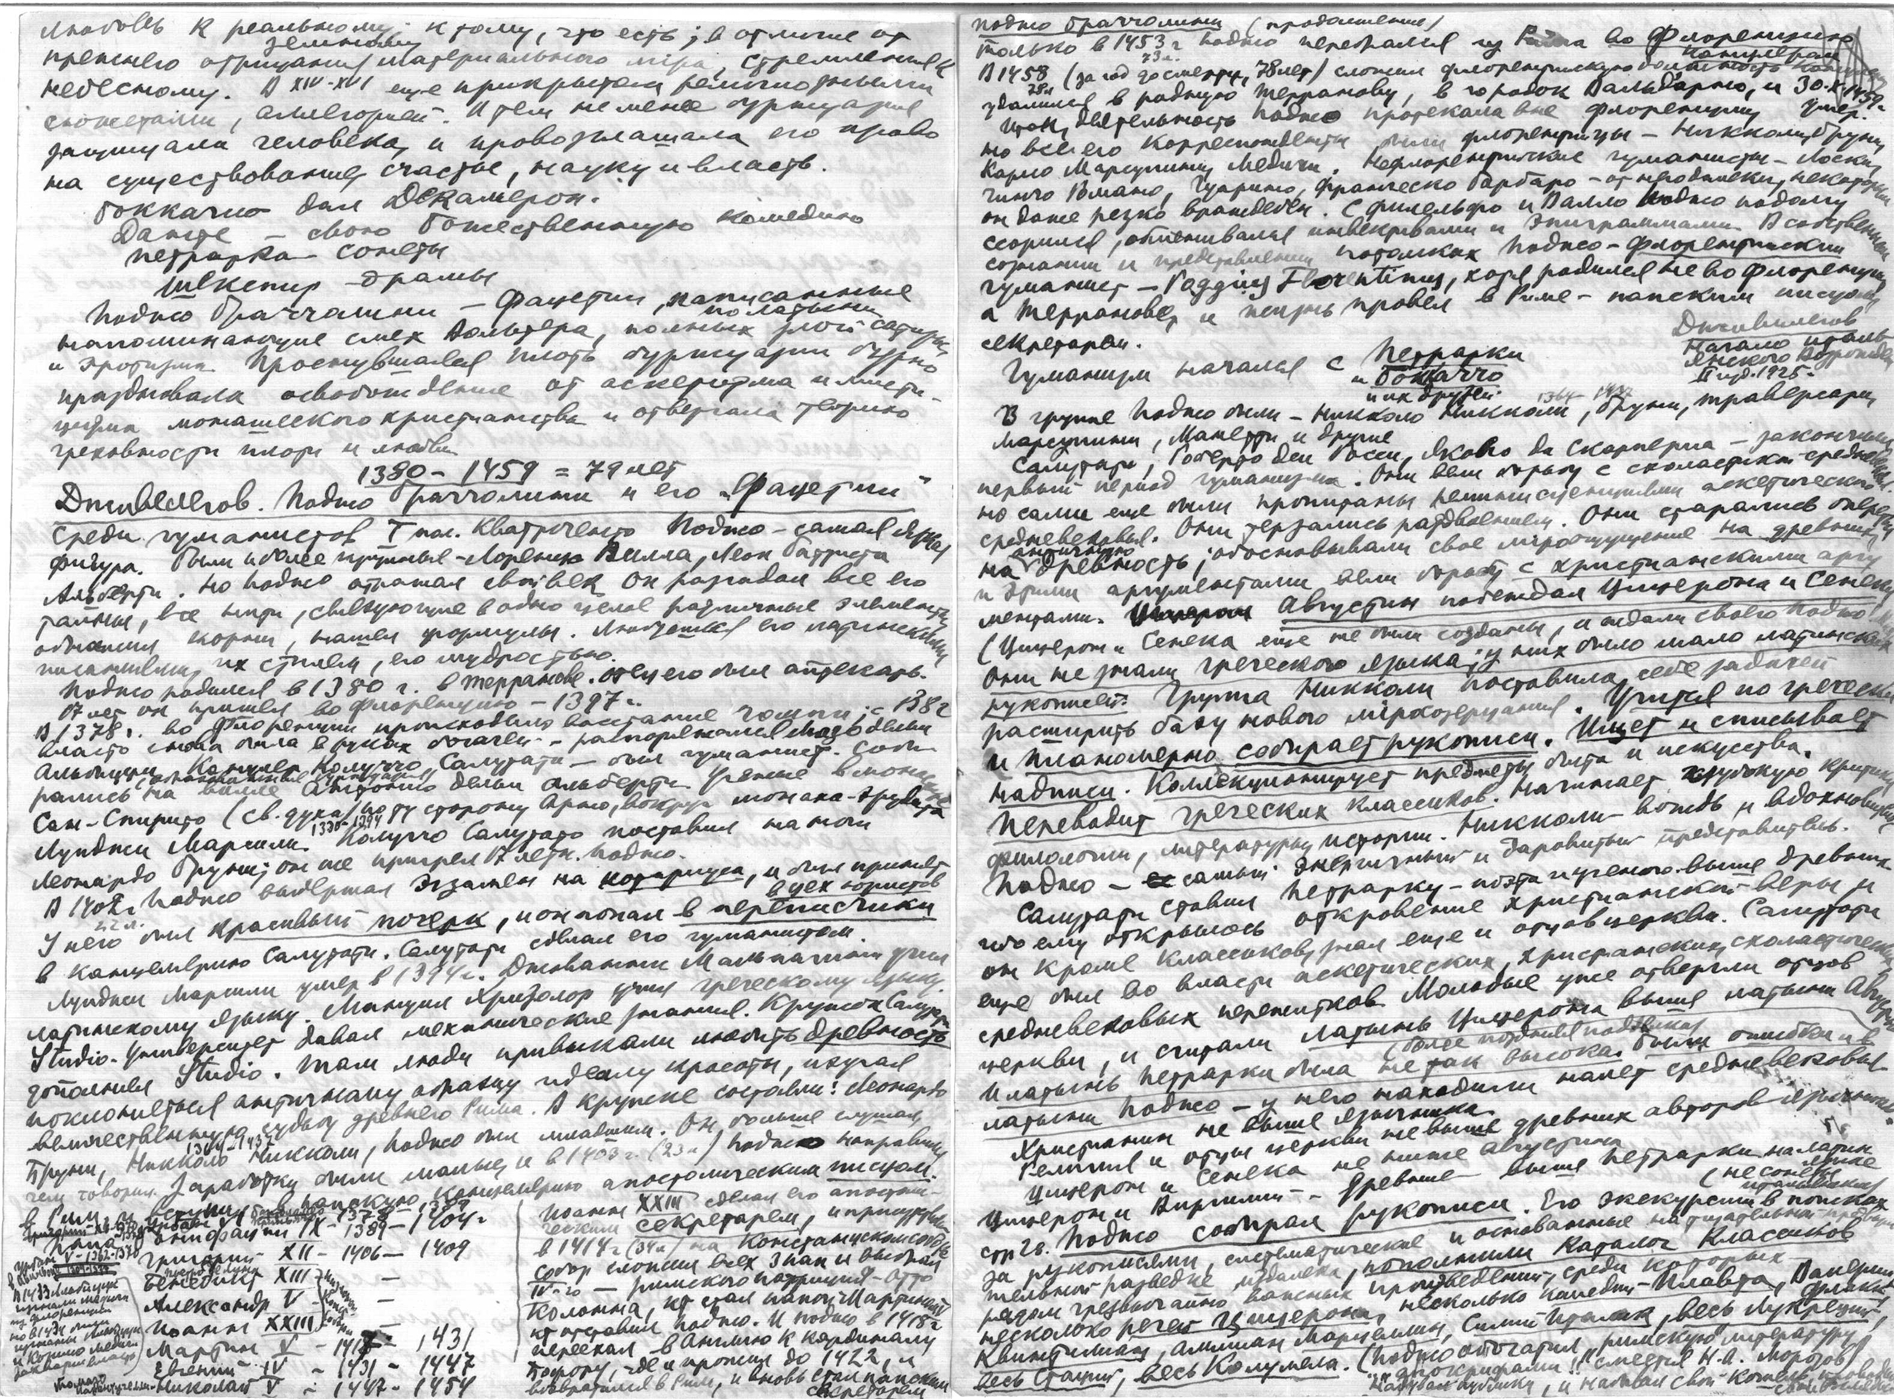 любовь к реальному, к тому, что есть; в отличие от
прежнего отрицания материального мира, стремления к
земному
небесному. В XIV-XVI еще прикрытая религиозными
сюжетами, аллегорией. И тем не менее буржуазия
защищала человека, и провозглашала его право
на существование, счастье, науку и власть.
Боккачио дал Декамерон.
Данте – свою божественную комедию
Петрарка – сонеты
Шекспир – драмы
Поджо Браччолини – Фацетии, написанные
по латыни
напоминающие смех Вольтера, полных злой сатиры
и эротизма. Проснувшаяся плоть буржуазии бурно
праздновала освобождение от аскетизма и мисти-
цизма монашеского христианства и отвергала теорию
греховности плоти и любви
1380 – 1459 = 79 лет
Дживелегов. Поджо Браччолини и его „Фацетии"
Среди гуманистов I пол. Кватроченто Поджо – самая яркая
фигура. Были и более крупные – Лоренцо Валла, Леон Баттиста
Альберти. Но Поджо отражал свой век. Он разгадал все его
тайны, все нити, связующие в одно целое различные элементы,
обнажил корни, нашел формулы.
писаниями, их стилем, его мудростью.
Поджо родился в 1380 г. в Терранове. Отец его был аптекарь.
17 лет он пришел во Флоренцию – 1397 г.
В 1378 г. во Флоренции происходило восстание чомпи, с 1382
власть снова была в руках богачей – распоряжался Мазо дельи
Альбицци. Канцлер Колуччо Салутати – был гуманист. Соби-
рались на вилле Антонио дельи Альберти. Ученые в монастыре
Сан-Спирито (св. духа) по ту сторону Арно, вокруг монаха-эрудита
1330-1394
Луиджи Марсили. Колуччо Салутато поставил на ноги
Леонардо Бруни; он же пригрел 17 летн. Поджо.
В 1402 г. Поджо выдержал экзамен на нотариуса, и был принят
22 л.
в цех юристов
У него был красивый почерк, и он попал в переписчики
в канцелярию Салутати. Салутати сделал его гуманистом.
Луиджи Марсили умер в 1394 г. Джованни Мальпагини учил
латинскому языку. Мануил Хризолор учил греческому языку.
Studio-Университет давал механические знания. Кружок Салутати
дополнял Studio. Там люди привыкали любить древность
поклоняться античному образцу идеалу красоты, изучая
величественную судьбу древнего Рима. В кружке состояли: Леонардо
Бруни, Никколо Никколи, Поджо был младшим. Он больше слушал,
1364-1437
чем говорил. Заработки были малые, и в 1403 г. (23 л.) Поджо направился
в Рим и вступил в папскую канцелярию апостолическим писцом.
Бонифаций IX – 1389 – 1404 г.
Григорий XII – 1406 – 1409
Бенедикт XIII –
Александр V –
Иоанн XXIII –
Мартин V – 1417 – 1431
Евгений IV – 1431 – 1447
Николай V – 1447 – 1454
Иоанн XXIII сделал его апостоли-
ческим секретарем, и присутствовал
в 1414 г (34 л) на Констанцском соборе
Собор сложил всех 3 пап и выбрал
IV-го – римского патриция – Отто
Колонна, кт стал папой Мартином V
кт оставил Поджо. И Поджо в 1418 г
переехал в Англию к кардиналу
Бофору, где и прожил до 1422, и
возвратился в Рим, и вновь стал папским
секретарем
Поджо Браччолини (продолжение)
Только в 1453 г. Поджо переехал из Рима во Флоренцию
73 л.
канцлером
В 1458 (за год до смерти, 78 лет) сложил флорентийскую должность
удалился в родную Терранову, в городок Вальдарно, и 30-X-1459 г.
умер.
Итак, деятельность Поджо протекала вне Флоренции,
но все его корреспонденты были флорентийцы – Никколи, Бруни
Карло Марсуппини, Медичи. Нефлорентийские гуманисты – Лоски,
Чинчо Романо, Гуарино, Франческо Барбаро – от него далеки, некоторым
он даже резко враждебен. С Филельфо и Валло Поджо подолгу
ссорился, обменивался инвективами и эпиграммами. В собственном
сознании и представлении потомков Поджо – флорентийский
гуманист – Poggius Florentinus, хотя родился не во Флоренции,
а Терранове, и жизнь провел в Риме – папским писцом,
секретарем.
Дживелегов
Начало италь-
янского Возрождения
II изд. 1925 г.
Гуманизм начался с Петрарки
и Боккаччо
и их друзей
1364 – 1437
В группе Поджо были – Никколо Никколи, Бруни, Траверсари,
Марсуппини, Манетти и другие
Салутати, Роберто деи Росси, Яково да Скарперия – закончили
первый период гуманизма. Они вели борьбу с схоластикой средневековья.
Но сами еще были пропитаны реминисценциями аскетического
средневековья. Они терзались раздвоением. Они старались опереться
на античную древность; обосновывали свое мироощущение на древних,
и этими аргументами вели борьбу с христианскими аргу-
ментами. Августин побеждал Цицерона и Сенеку
(Цицерон и Сенека еще не были созданы, и ждали своего Поджо
Они не знали греческого языка; у них было мало латинских
рукописей. Группа Никколи поставила себе задачей
расширить базу нового миросозерцания. Учится по гречески
и планомерно собирает рукописи. Ищет и списывает
надписи. Коллекционирует предметы быта и искусства.
Переводит греческих классиков. Начинает глубокую критику
филологии, литературы, истории. Никколи – вождь и вдохновитель,
Поджо – самый энергичный и даровитый представитель.
Салутати ставил Петрарку – поэта и ученого выше древних
ибо ему открылось откровение христианской веры, и
он кроме классиков, знал еще и отцов церкви. Салутати
еще был во власти аскетических, христианских, схоластических
средневековых пережитков. Молодые уже отвергли отцов
церкви, и считали латынь Цицерона выше латыни Августина
(более поздний подвижник)
И латынь Петрарки была не так высока. Были ошибки и в
латыни Поджо – у него находили налет средневековья
Христианин не выше язычника.
Религия и отцы церкви не выше древних авторов язычников
Цицерон и Сенека не ниже Августина
Цицерон и Вергилий – древние – выше Петрарки на латин-
ском языке
(не сонеты
итальянские)
стр 26. Поджо собирал рукописи. Его экскурсии в поисках
за рукописями, систематические и основанные на тщательной предвари-
тельной разведке издалека, пополнили каталог классиков
рядом чрезвычайно важных произведений, среди которых
несколько речей Цицерона, несколько комедий Плавта, Валерий Флакк,
Квинтилиан, Аммиан Марцеллин, Силий Италик, весь Лукреций,
весь Стаций, весь Колумелла. (Поджо обогатил римскую литературу
„апокрифами"!! смеется Н.А. Морозов)